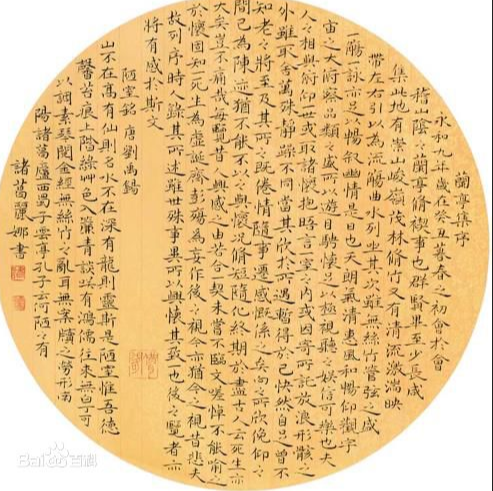 蘭亭集序
永和九年歲在癸丑暮春之初會於會
稽山陰之蘭亭脩禊事也群賢畢至少長咸
集此地有崇山峻嶺茂林脩竹又有清流激湍映
帶左右引以為流觴曲水列坐其次雖無絲竹管弦之盛
一觴一詠亦足以暢敘幽情是日也天朗氣清惠風和暢仰觀宇
宙之大俯察品類之盛所以遊目騁懷足以極視聽之娛信可樂也夫
人之相與俯仰一世或取諸懷抱晤言一室之內或因寄所託放浪形骸之
外雖取舍萬殊靜躁不同當其欣於所遇暫得於己快然自足曾不
知老之將至及其所之既倦情隨事遷感慨係之矣向之所欣俛仰之
間已為陳迹猶不能不以之興懷況脩短隨化終期於盡古人云死生亦
大矣豈不痛哉每覽昔人興感之由若合一契未嘗不臨文嗟悼不能喻之
於懷固知一死生為虛誕齊彭殤為妄作後之視今亦猶今之視昔悲夫
故列序時人錄其所述雖世殊事異所以興懷其致一也後之覽者亦
將有感於斯文
陋室銘 唐 劉禹錫
山不在高有仙則名水不在深有龍則靈斯是陋室惟吾德
馨苔痕上階綠艸色入簾青談笑有鴻儒往來無白丁可
以調素琴閱金經無絲竹之亂耳無案牘之勞形南
陽諸葛廬西蜀子雲亭孔子云何陋之有
諸葛麗娜書
Baidu百科